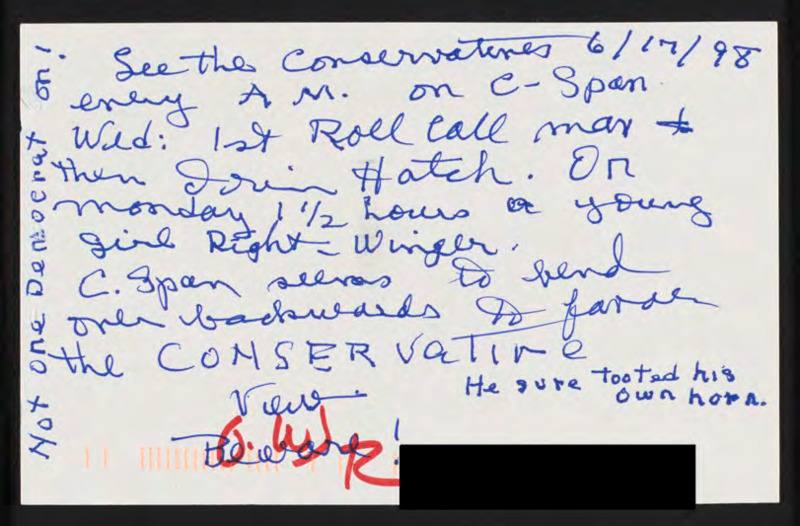 See the Conservatives 6/17/98
every A.M. on C-Span.
Wed: 1st Roll Call mar &
then Orrin Hatch. On
monday 1 1/2 hours a young
girl Right-Winger.
C.Span seems to bend
over backwards to favor
the CONSERVaTIVe
View.
Beware!
He sure tooted his
own horn.
Not one Democrat on!